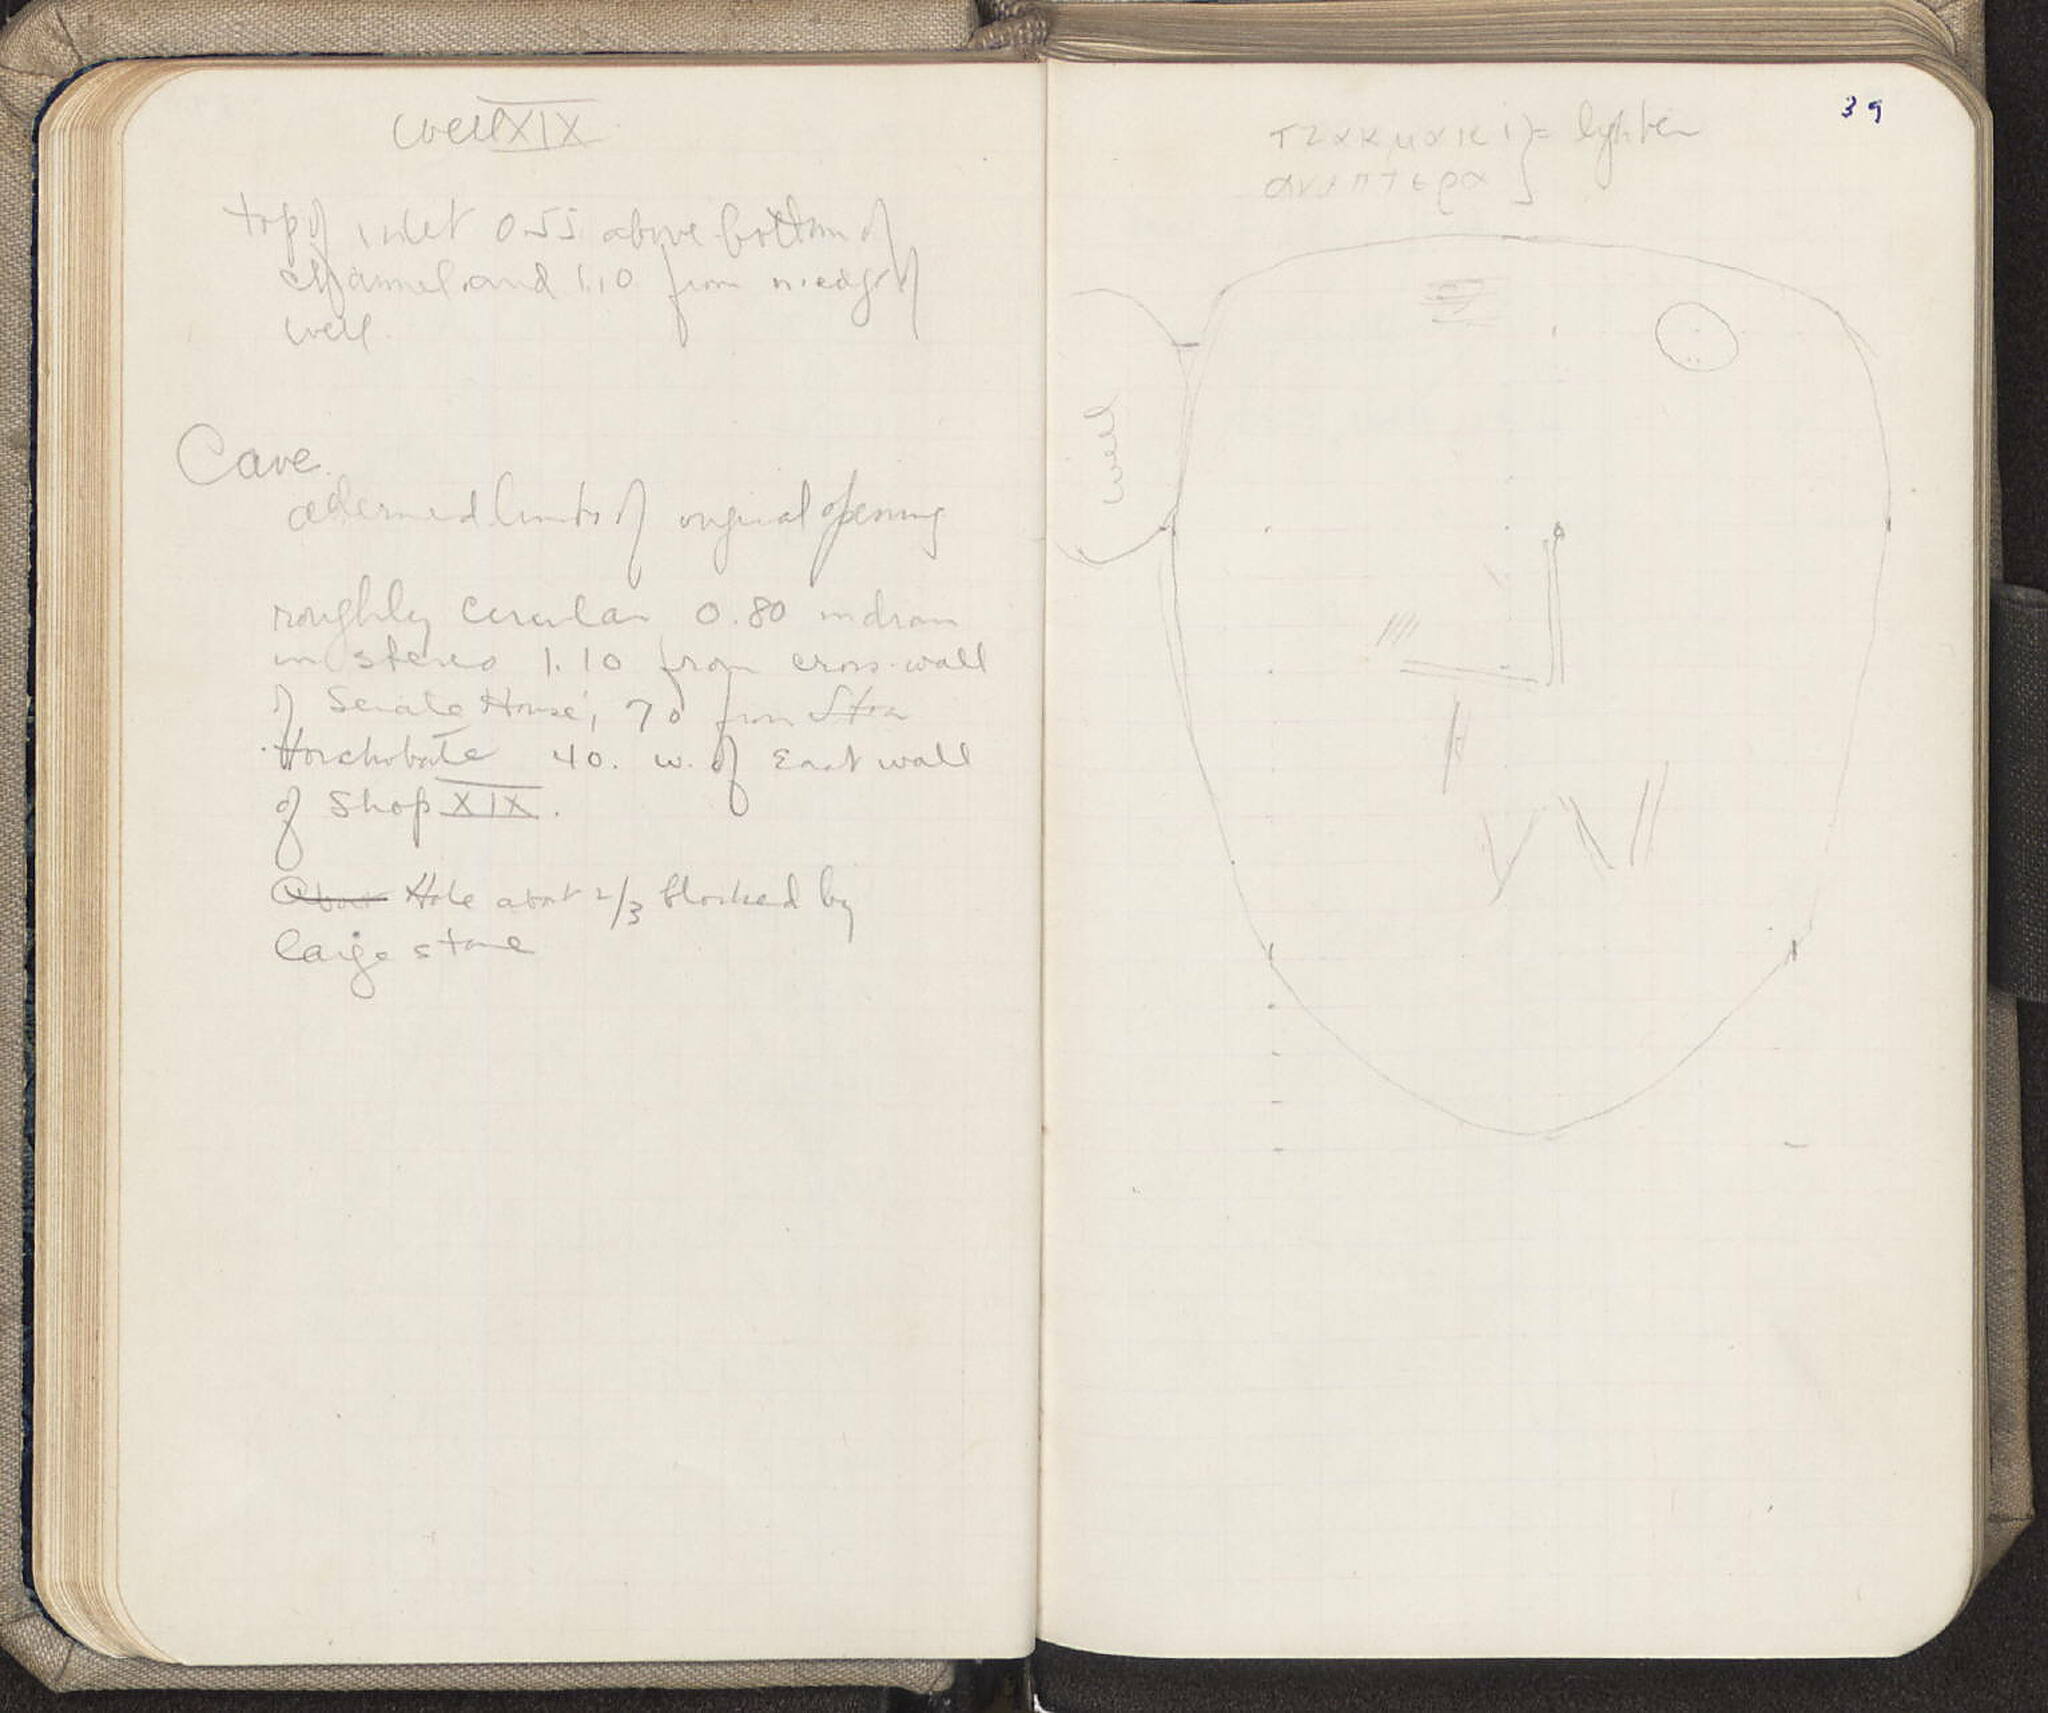 Well XIX
top of inlet 0.55 above bottom of
channel and 1.10 from n. edge of
well.
Cave.
determined limits of original opening
roughly circular 0.80 in diam
in stereo 1.10 from cross-wall
of Senate House; 70 from Stoa
40. w. of East wall
of Shop XIX.
About Hole about 2/3 blocked by
large stone
39
τζακμακι } = lighter
αναπτερα
well